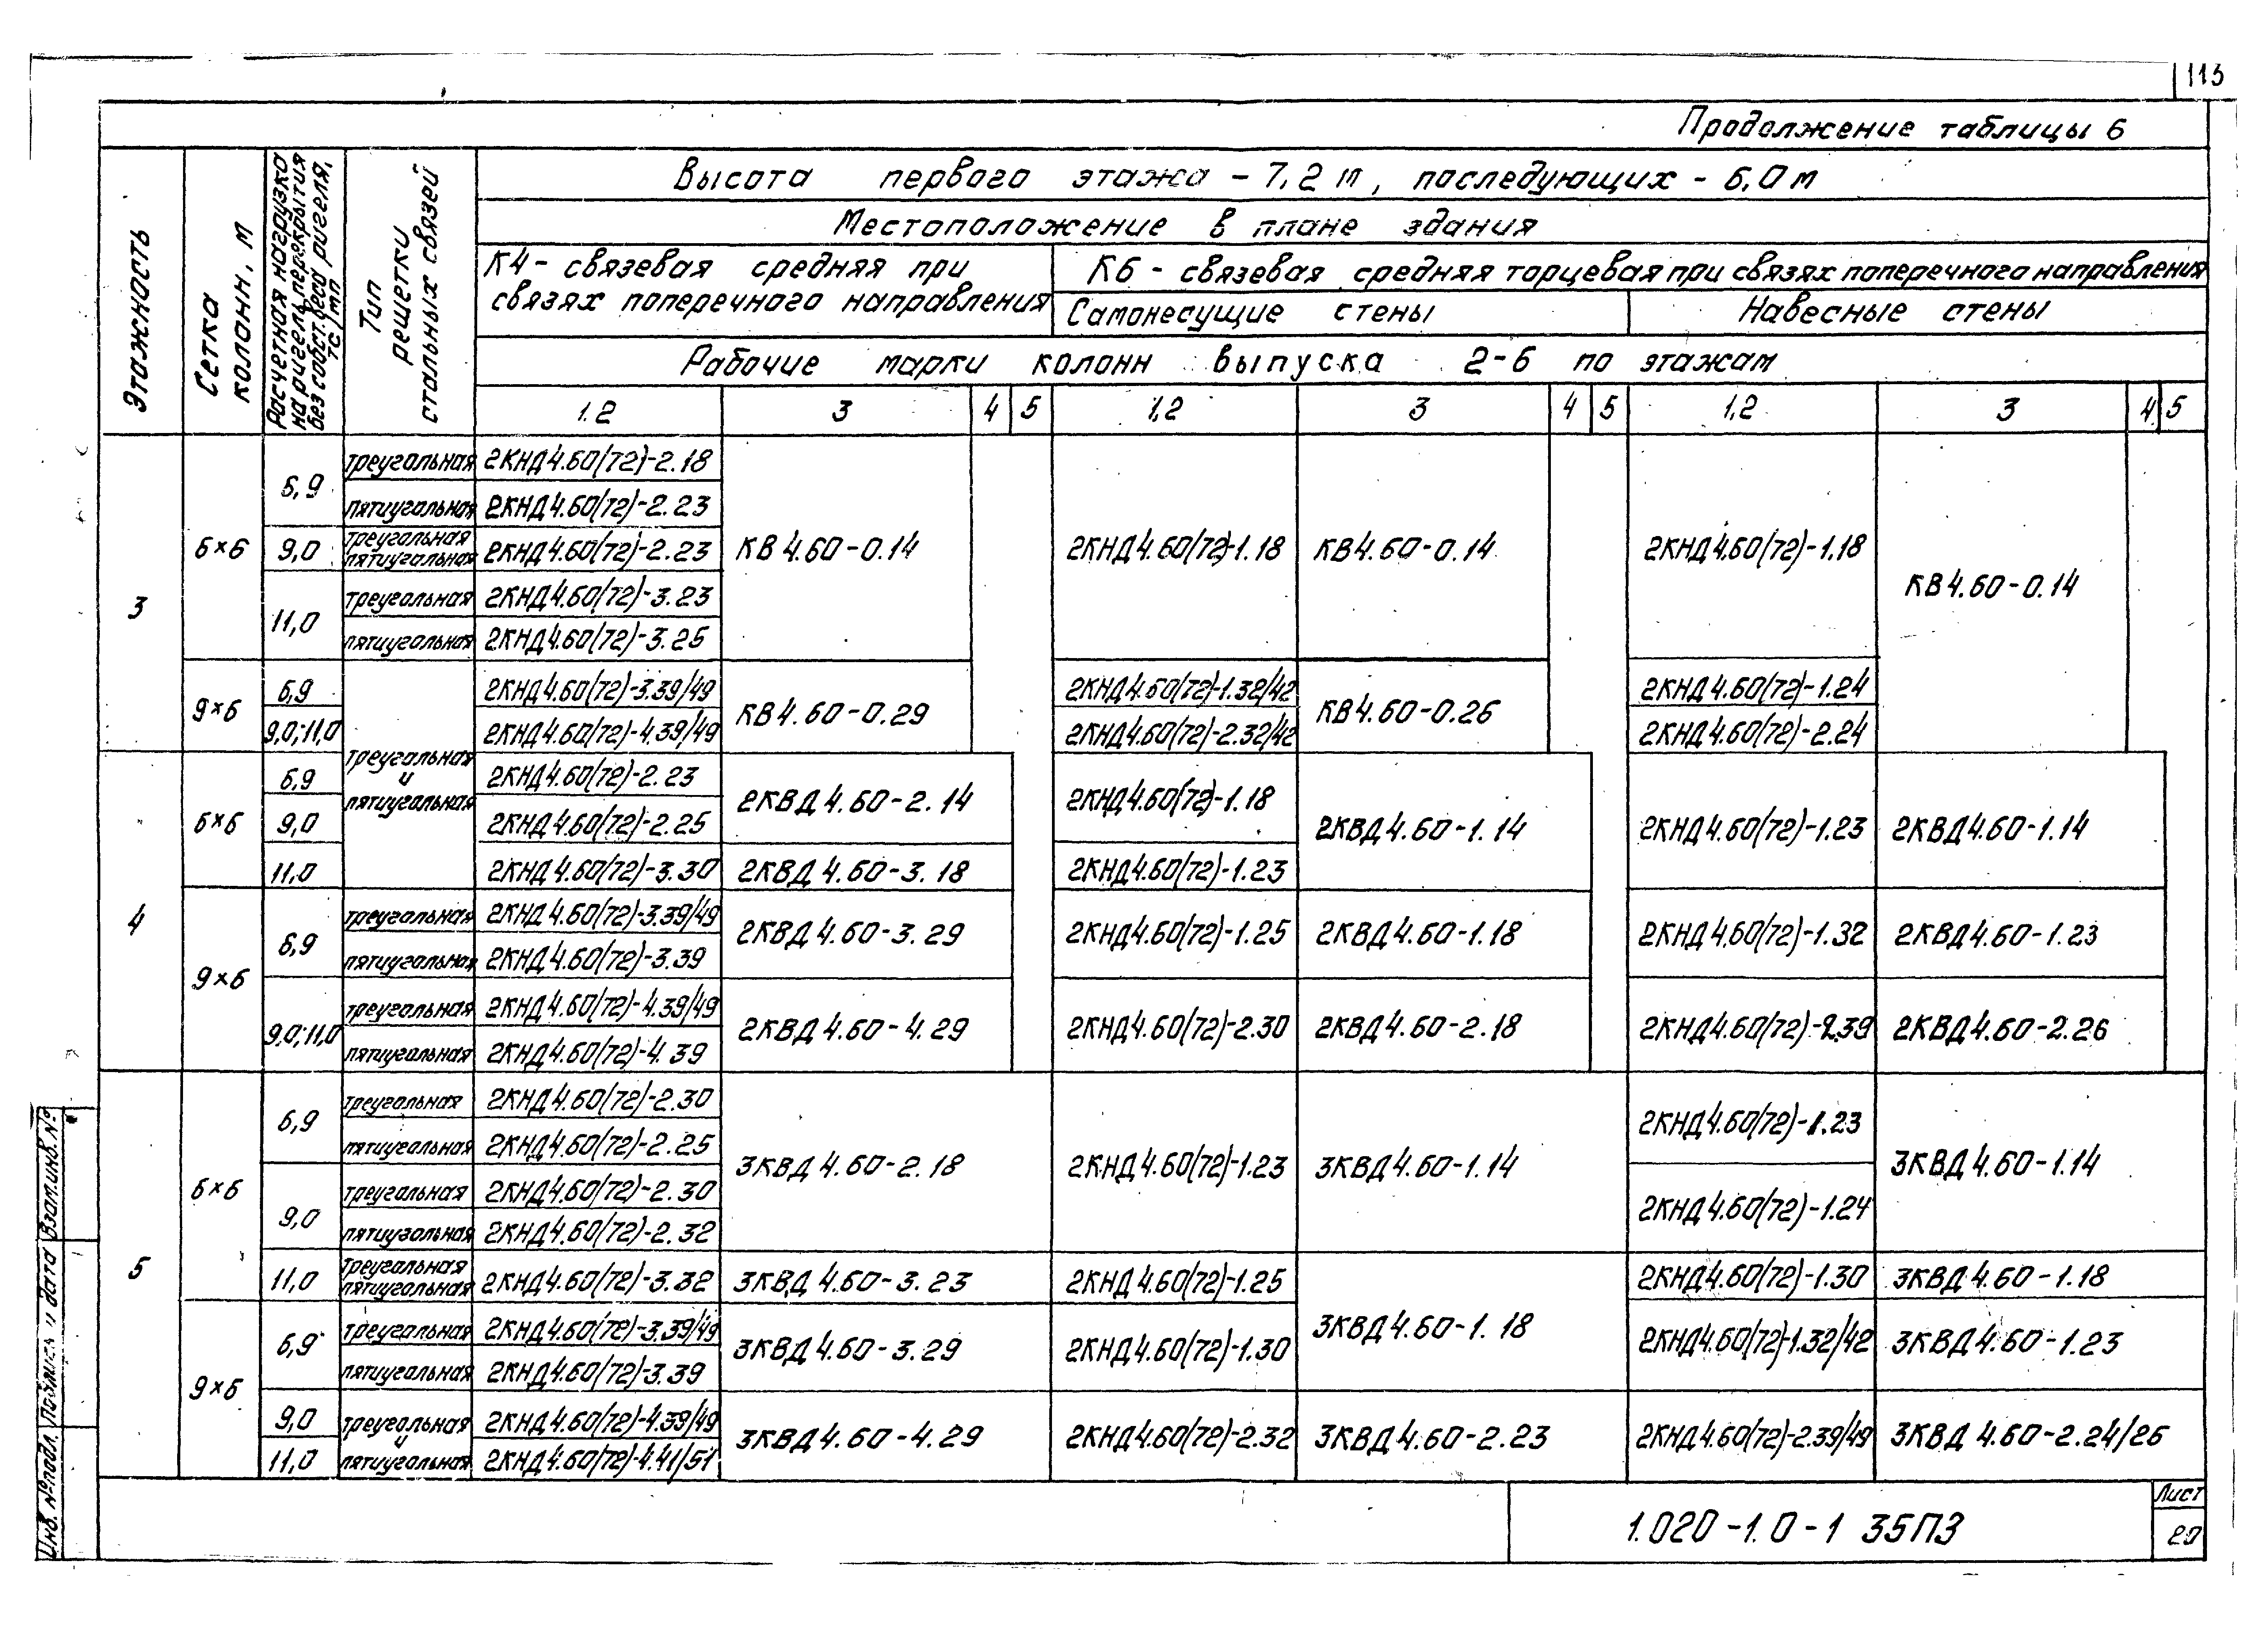 113
Продолжение таблицы 6
Этажность
Сетка колонн, м
Расчетная нагрузка на ригель перекрытия без собст. веса ригеля, тс/мп
Тип решетки стальных связей
Высота первого этажа - 7,2 м, последующих - 6,0 м
Местоположение в плане здания
К4 - связевая средняя при связях поперечного направления
К6 - связевая средняя торцевая при связях поперечного направления
Самонесущие стены
Навесные стены
Рабочие марки колонн выпуска 2-6 по этажам
1.2 3 4 5 1,2 3 4 5 1,2 3 4 5
3
6×6
6,9
треугальная 2КНД4.60(72)-2.18
пятиугальная 2КНД4.60(72)-2.23
9,0 треугальная пятиугальная 2КНД4.60(72)-2.23 КВ4.60-0.14 2КНД4.60(72)-1.18 КВ4.60-0.14 2КНД4.60(72)-1.18
11,0
треугальная 2КНД4.60(72)-3.23
пятиугальная 2КНД4.60(72)-3.25
КВ4.60-0.14
9×6
6,9 2КНД4.60(72)-3.39/49 2КНД4.60(72)-1.32/42 2КНД4.60(72)-1.24
КВ4.60-0.29 КВ4.60-0.26
9,0;11,0 2КНД4.60(72)-4.39/49 2КНД4.60(72)-2.32/42 2КНД4.60(72)-2.24
треугальная и пятиугальная
4
6×6
6,9 2КНД4.60(72)-2.23
2КВД4.60-2.14 2КНД4.60(72)-1.18
9,0 2КНД4.60(72)-2.25 2КВД4.60-1.14 2КНД4.60(72)-1.23 2КВД4.60-1.14
11,0 2КНД4.60(72)-3.30 2КВД4.60-3.18 2КНД4.60(72)-1.23
9×6
6,9
треугальная 2КНД4.60(72)-3.39/49
2КВД4.60-3.29 2КНД4.60(72)-1.25 2КВД4.60-1.18 2КНД4.60(72)-1.32 2КВД4.60-1.23
пятиугальная 2КНД4.60(72)-3.39
9,0;11,0
треугальная 2КНД4.60(72)-4.39/49
2КВД4.60-4.29 2КНД4.60(72)-2.30 2КВД4.60-2.18 2КНД4.60(72)-2.39 2КВД4.60-2.26
пятиугальная 2КНД4.60(72)-4.39
5
6×6
6,9
треугальная 2КНД4.60(72)-2.30
2КНД4.60(72)-1.23
пятиугальная 2КНД4.60(72)-2.25
3КВД4.60-2.18 2КНД4.60(72)-1.23 3КВД4.60-1.14 3КВД4.60-1.14
9,0
треугальная 2КНД4.60(72)-2.30
2КНД4.60(72)-1.24
пятиугальная 2КНД4.60(72)-2.32
11,0 треугальная пятиугальная 2КНД4.60(72)-3.32 3КВД4.60-3.23 2КНД4.60(72)-1.25 2КНД4.60(72)-1.30 3КВД4.60-1.18
3КВД4.60-1.18
9×6
6,9
треугальная 2КНД4.60(72)-3.39/49
3КВД4.60-3.29 2КНД4.60(72)-1.30 2КНД4.60(72)-1.32/42 3КВД4.60-1.23
пятиугальная 2КНД4.60(72)-3.39
9,0 2КНД4.60(72)-4.39/49
треугальная и пятиугальная 3КВД4.60-4.29 2КНД4.60(72)-2.32 3КВД4.60-2.23 2КНД4.60(72)-2.39/49 3КВД4.60-2.24/26
11,0 2КНД4.60(72)-4.41/51
Инв. № подл. Подпись и дата Взам.инв. №
1.020-1.0-1 35ПЗ
Лист
20